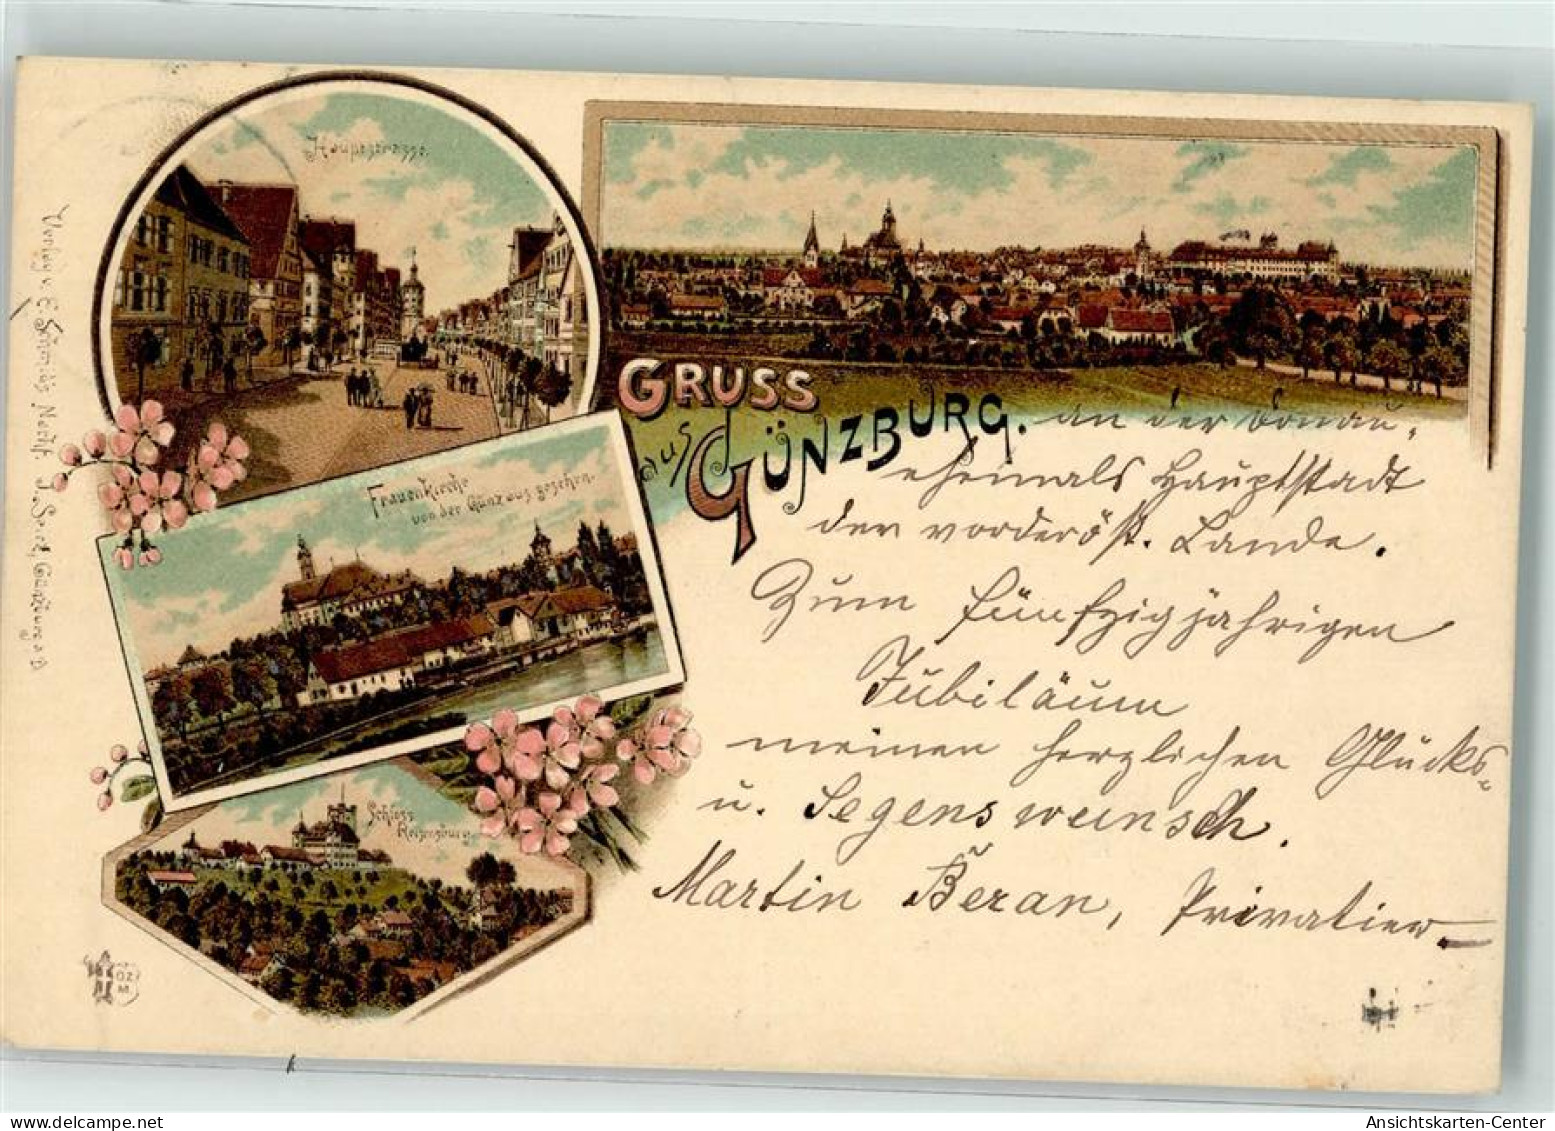 Hauptstrasse.
GRUSS
aus
GÜNZBURG.
an der Donau,
ehemals Hauptstadt
der vorderöst. Lande.
Zum fünfzigjährigen
Jubiläum
meinen herzlichen Glücks-
u. Segenswunsch.
Martin Beran, Privatier
Frauenkirche
von der Günz aus gesehen.
Schloss
Reisensburg.
Verlag v. E. Schmids Nachf. J. Seitz, Günzburg a. D.
OZ
M.
Ansichtskarten-Center